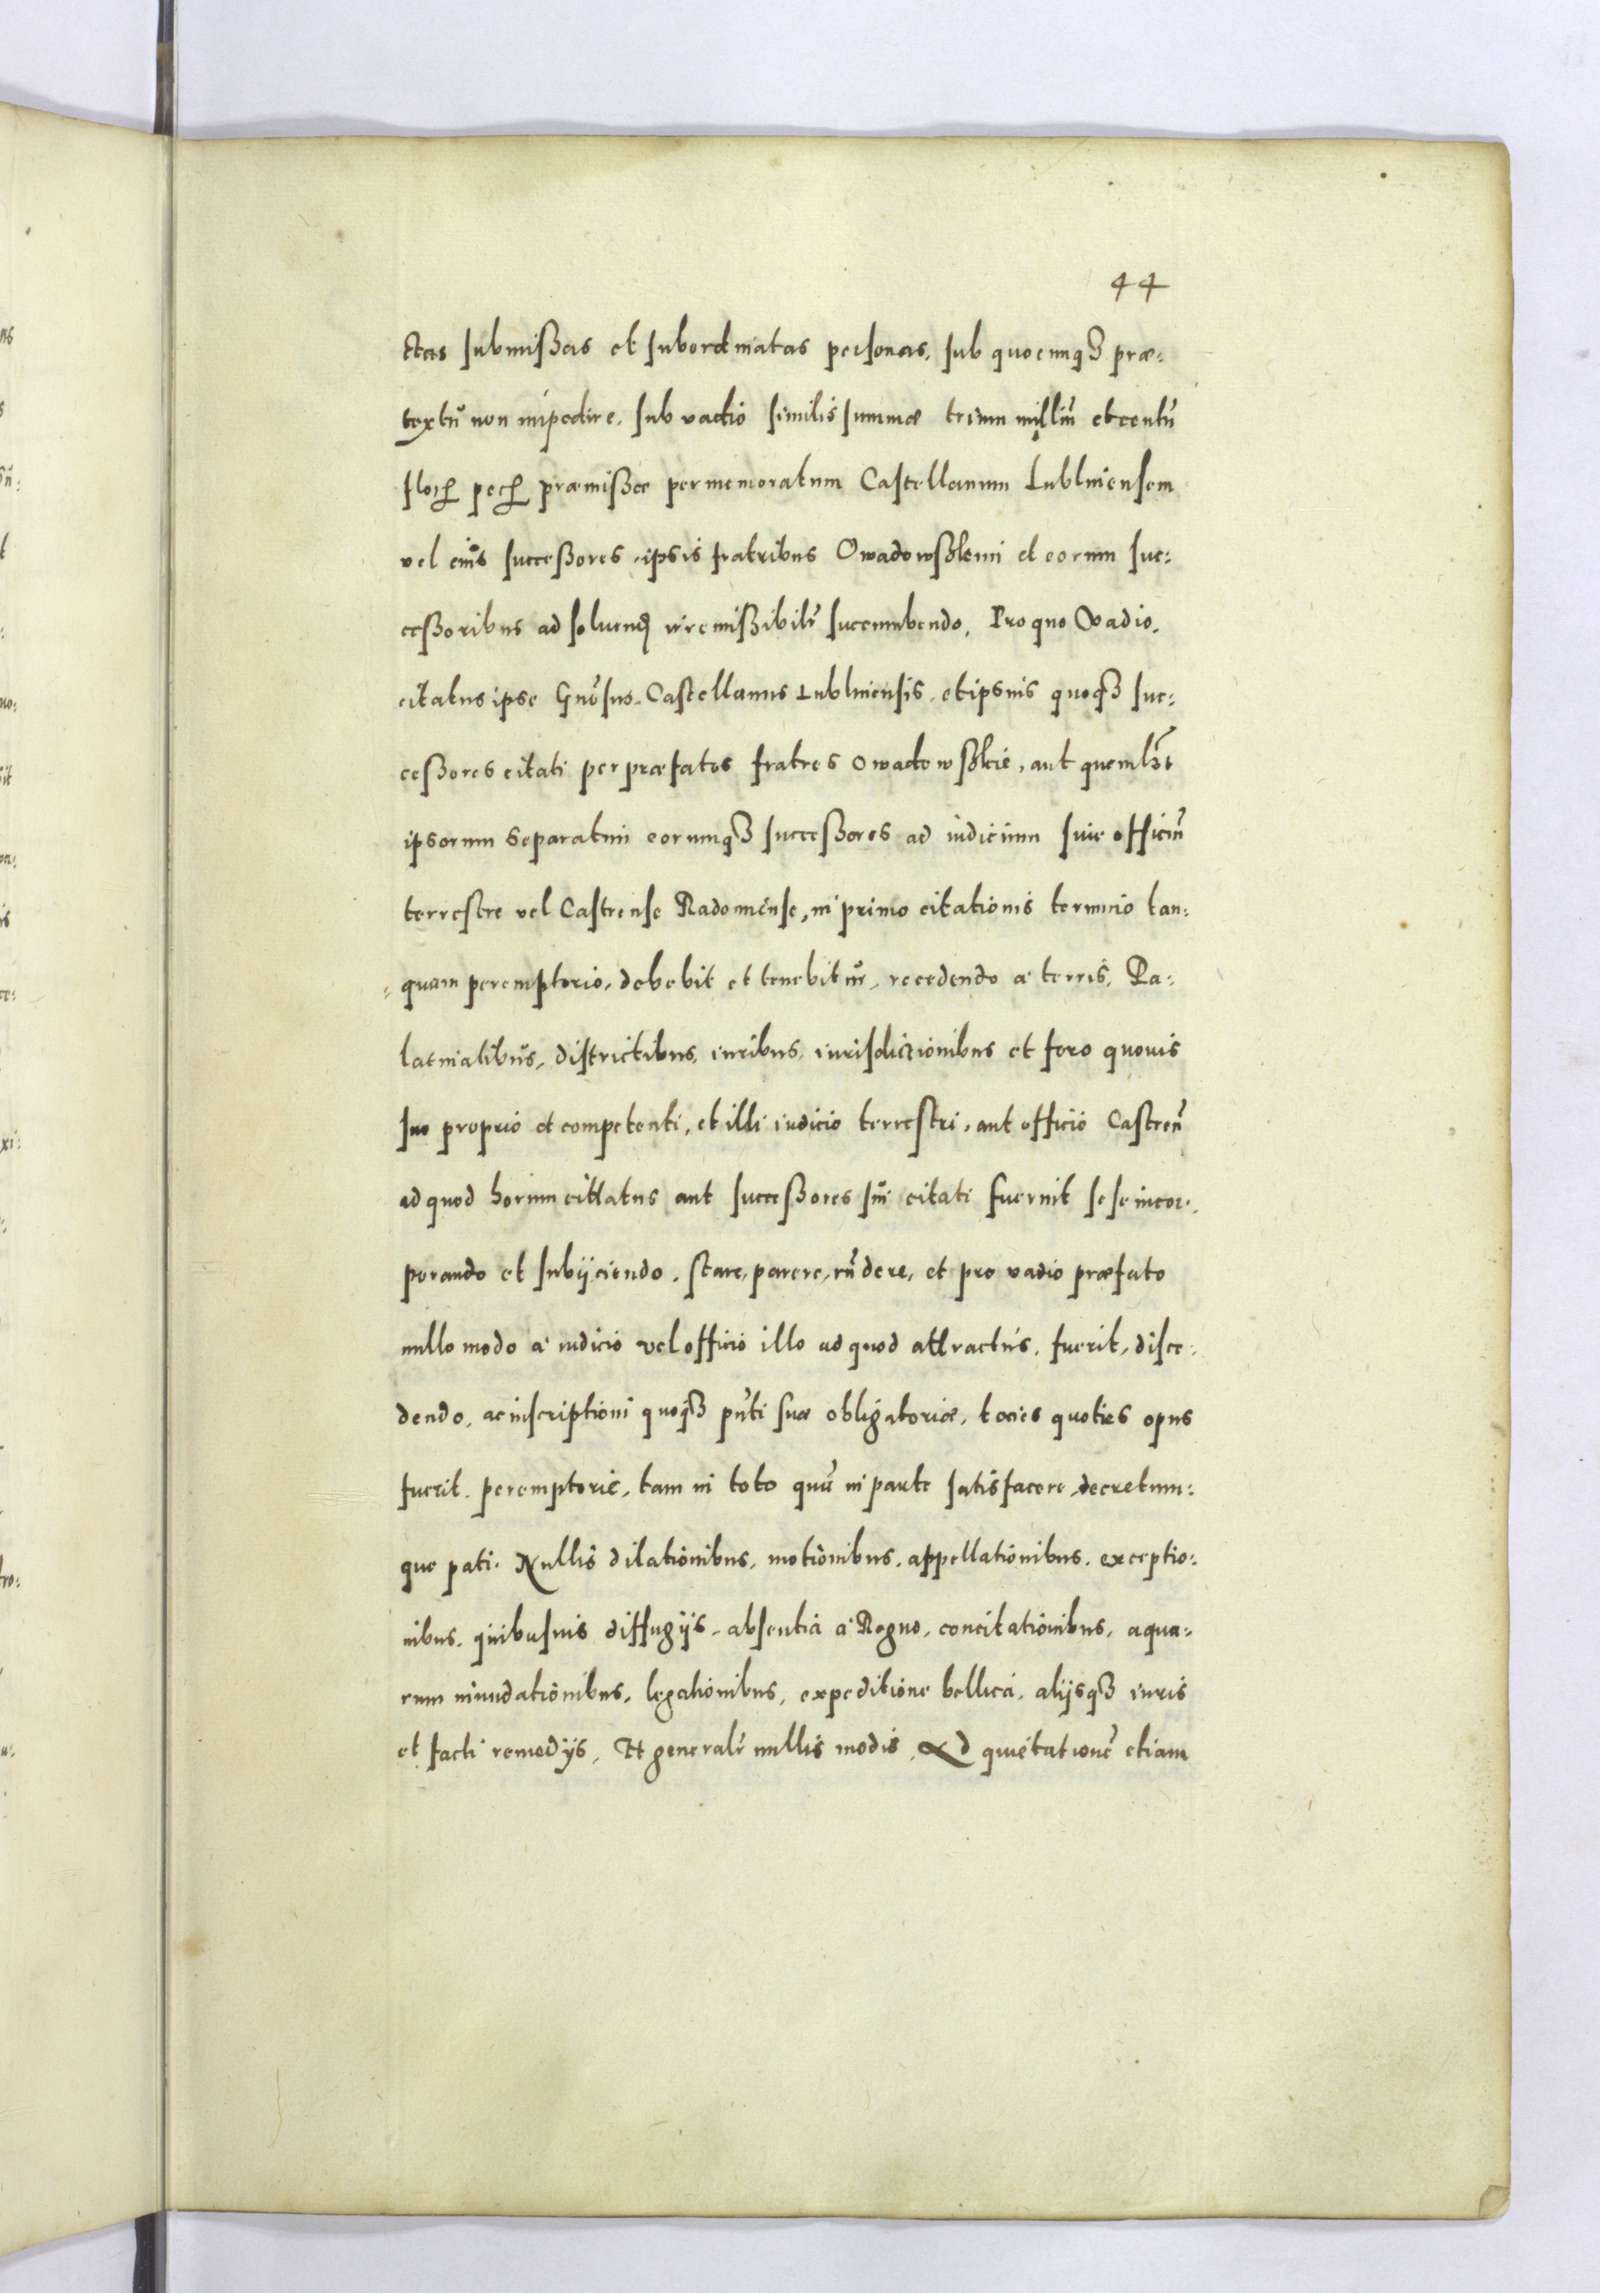 44
ctas submissas et subordinatas personas, sub quocunq3 præ:
textũ non impedire. sub vadio similis summæ trium milliũ et centũ
flor. pecũ. præmissæ per memoratum Castellanum Lublinensem
vel eius successores, ipsis fratribus Owadowskimi et eorum suc:
cessoribus ad soluend. irremissibilr̃ succumbendo. Pro quo Vadio,
citatus ipse Gñosus Castellanus Lublinensis, et ipsius quoq3 suc:
cessores citati per præfatos fratres Owadowskie, aut quemlibet
ipsorum separatim eorumq3 successores ad iudicium siue officiũ
terrestre vel Castrense Radomiense, in primo citationis termino tan:
quam peremptorio, debebit et tenebitur, recedendo a terris, Pa:
latinatibus, districtibus, iuribus, iurisdictionibus et foro quouis
suo proprio et competenti, et illi iudicio terrestri, aut officio Castreñ
ad quod horum cittatus aut successores sui citati fuerint sese incor:
porando et subijciendo, stare, parere, rñdere, et pro vadio præfato
nullo modo a iudicio vel officio illo ad quod attractus, fuerit, disce:
dendo, ac inscriptioni quoq3 pñti suæ obligatoriæ, tocies quoties opus
fuerit. peremptorie, tam in toto quã in parte satisfacere, decretum:
que pati. Nullis dilationibus, motionibus, appellationibus, exceptio:
nibus, quibusuis diffugijs, absentia a Regno, concitationibus, aqua:
rum inundationibus, legationibus, expeditione bellica, alijsq3 iuris
et facti remedijs, Et generalr̃ nullis modis. Ad quietationẽ etiam